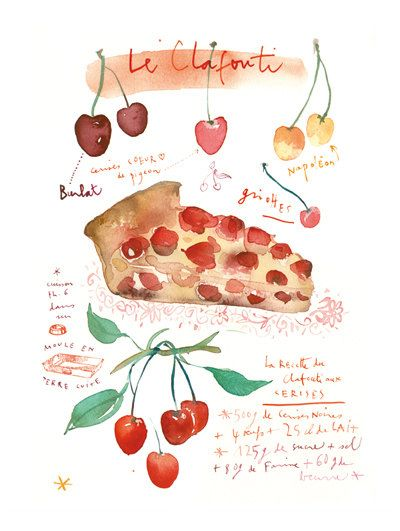 Le Clafouti
Burlat
Cerises COEUR
de pigeon
Napoléon
griottes
cuisson
th. 6
dans
un
MOULE EN
TERRE CUITE
La Recette du
Clafouti aux
CERISES
* 500g de Cerises Noires
+ 4 œufs + 25 cl de LAIT
* 125g de sucre + sel
+ 80g de Farine + 60g de
beurre *